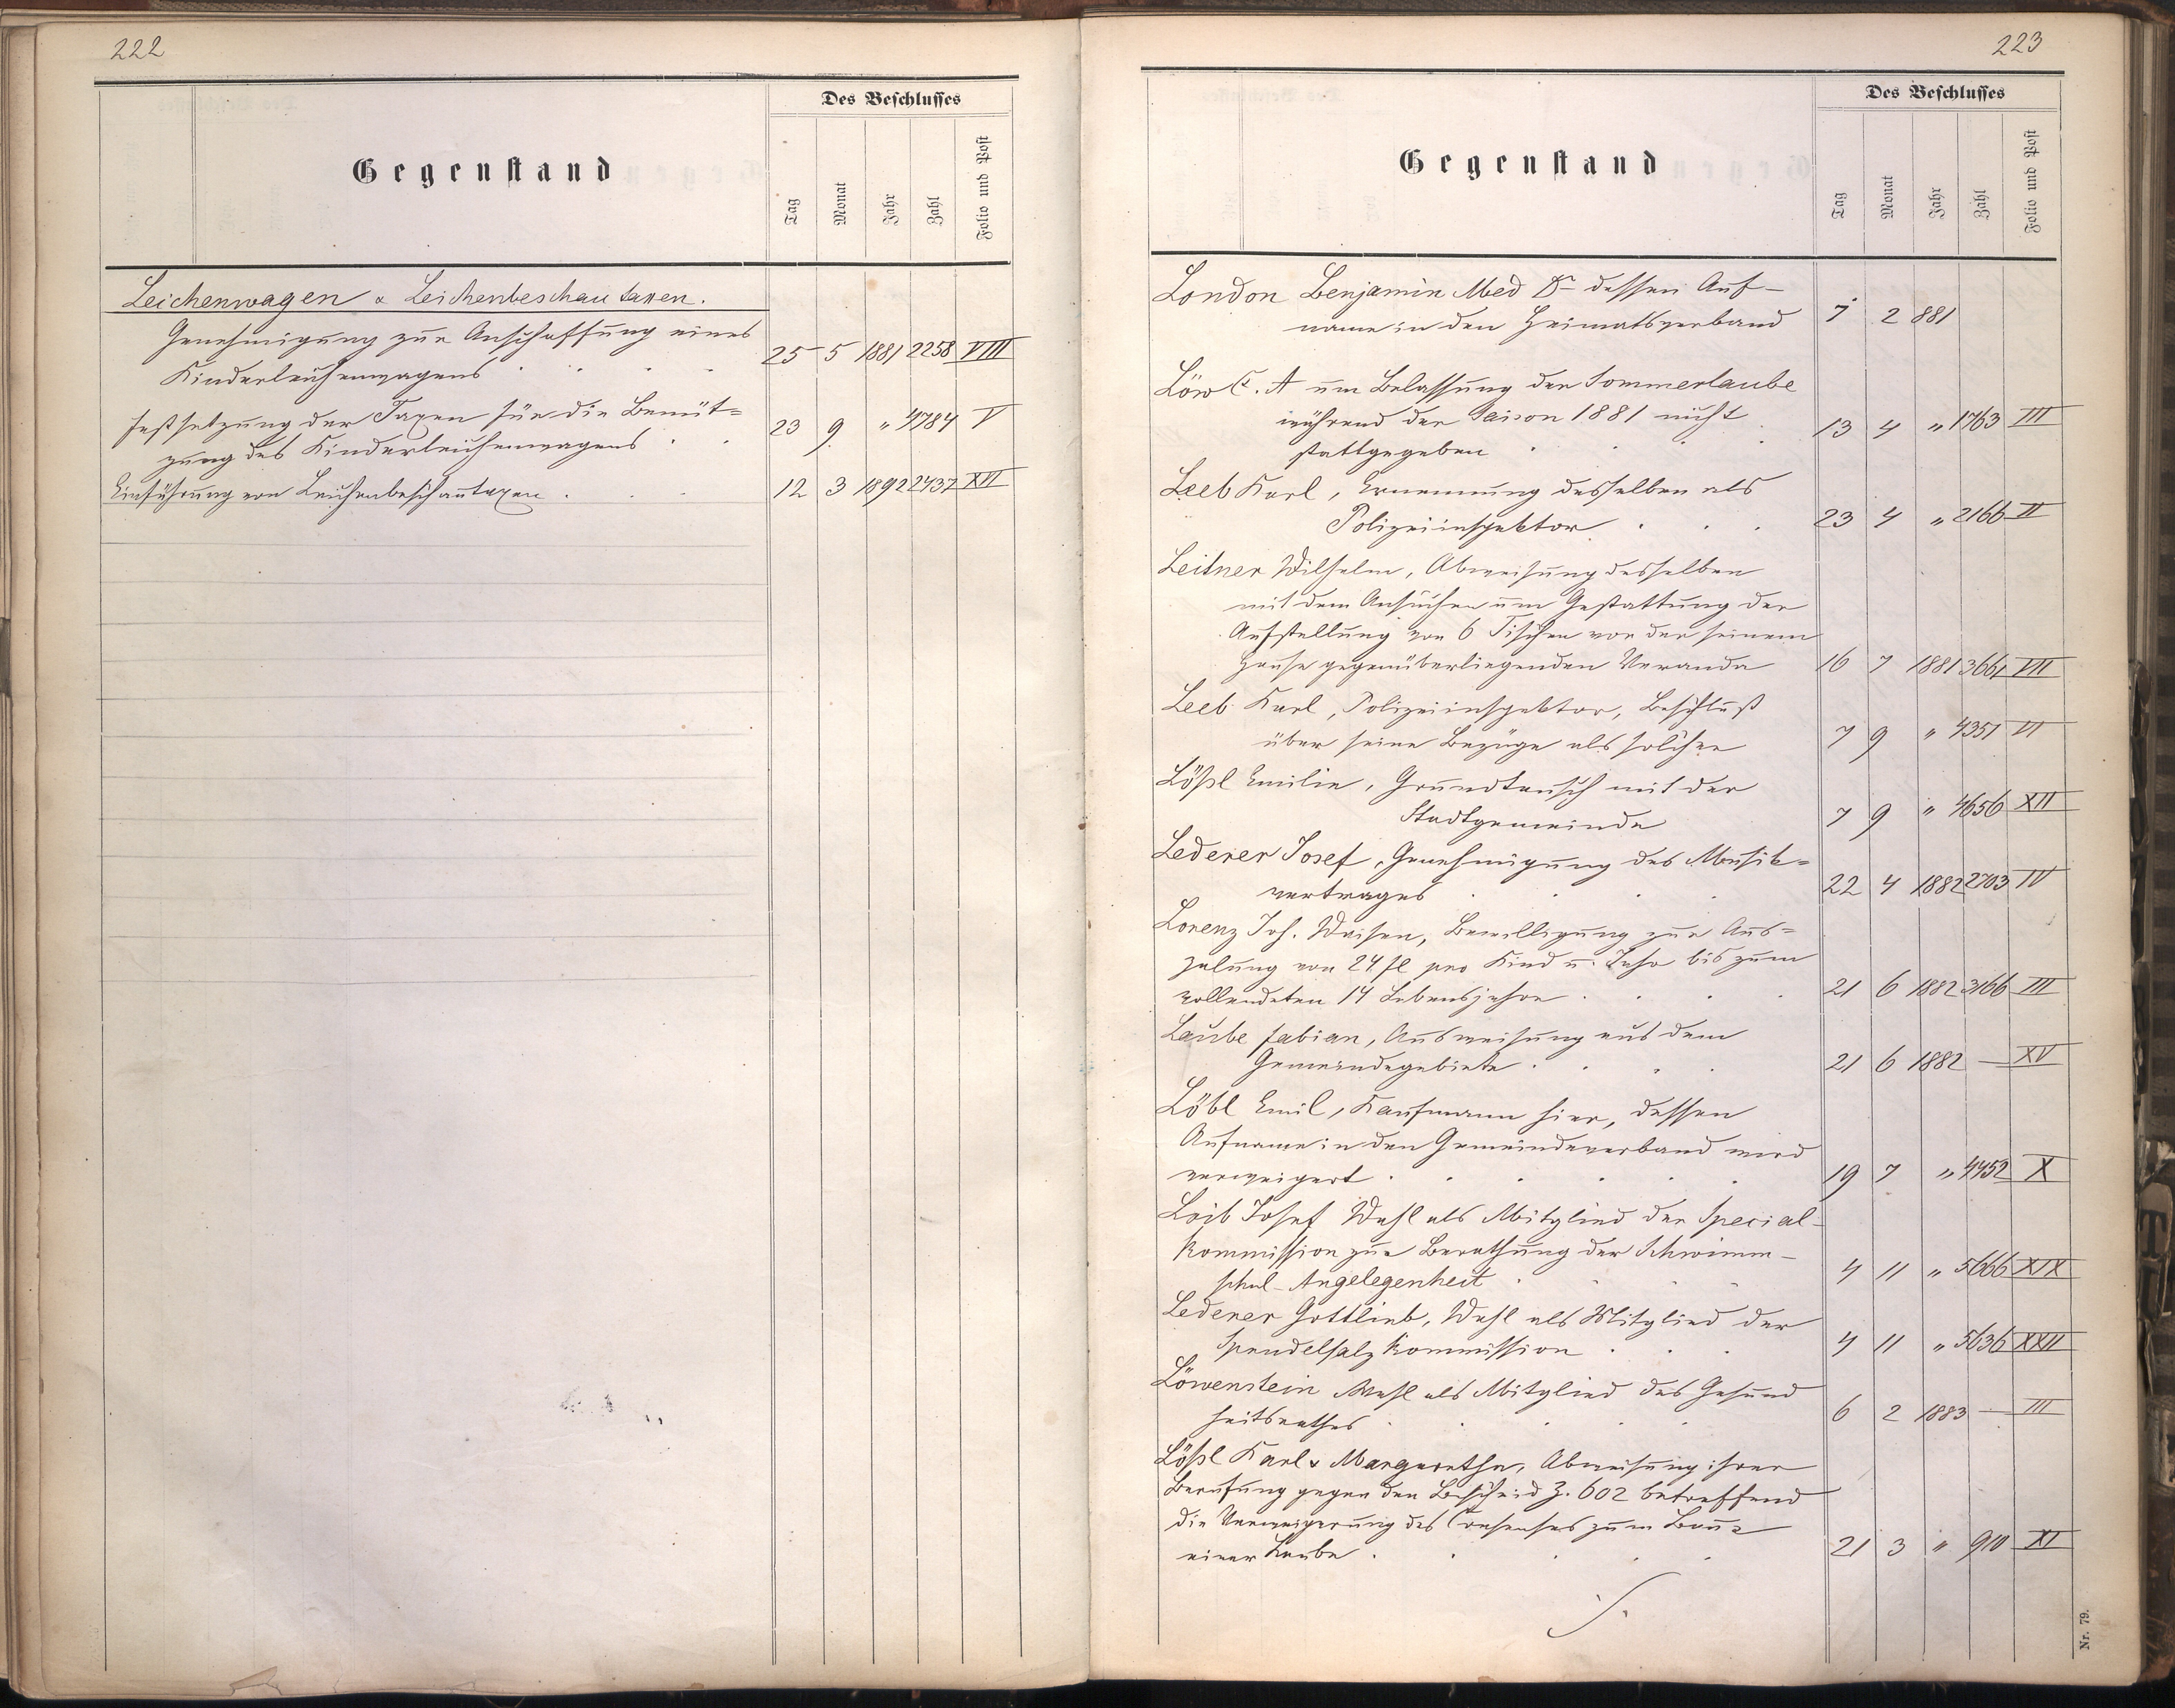 222
Des Beschlusses
Gegenstand
Tag
Monat
Jahr
Zahl
Folio und Post
Leichenwagen & Leichenbeschautaxen.
Genehmigung zur Anschaffung eines
Kinderleichenwagens 25 5 1881 2258 VIII
Festsetzung der Taxen für die Benüt=
zung des Kinderleichenwagens 23 9 " 4784 V
Einführung von Leichenbeschautaxen 12 3 1892 2737 XVI
223
Des Beschlusses
Gegenstand
Tag
Monat
Jahr
Zahl
Folio und Post
London Benjamin Med Dr dessen Auf-
name in den Heimatsverband 7 2 881
Löw C. A um Belassung der Sommerlaube
während der Saison 1881 nicht
stattgegeben 13 4 " 1763 III
Leeb Karl, Ernennung desselben als
Polizeiinspektor 23 4 " 2166 II
Leitner Wilhelm, Abweisung desselben
mit dem Ansuchen um Gestattung der
Aufstellung von 6 Tischen vor der seinem
Hause gegenüberliegenden Veranda 16 7 1881 3661 VII
Leeb Karl, Polizeiinspektor, Beschluß
über seine Bezüge als solcher 7 9 " 4351 VI
Lößl Emilie, Grundtausch mit der
Stadtgemeinde 7 9 " 4656 XII
Lederer Josef, Genehmigung des Musik=
vertrages 22 4 1882 2703 IV
Lorenz Joh. Waisen, Bewilligung zur Aus=
zalung von 24 fl pro Kind u. Jahr bis zum
vollendeten 14 Lebensjahre 21 6 1882 3166 III
Laube Fabian, Ausweisung aus dem
Gemeindegebiete 21 6 1882 — XV
Löbl Emil, Kaufmann hier, dessen
Aufname in den Gemeindeverband wird
verweigert 19 7 " 4452 X
Loib Josef Wahl als Mitglied der Special-
kommission zur Berathung der Schwimm-
schul-Angelegenheit 4 11 " 5666 XIX
Lederer Gottlieb, Wahl als Mitglied der
Sprudelsalzkommission 4 11 " 5636 XXII
Löwenstein Wahl als Mitglied des Gesund
heitsrathes 6 2 1883 — III
Lößl Karl & Margarethe, Abweisung ihrer
Berufung gegen den Bescheid Z. 602 betreffend
die Verweigerung des Consenses zum Baue
einer Laube 21 3 " 910 XI
Nr. 79.